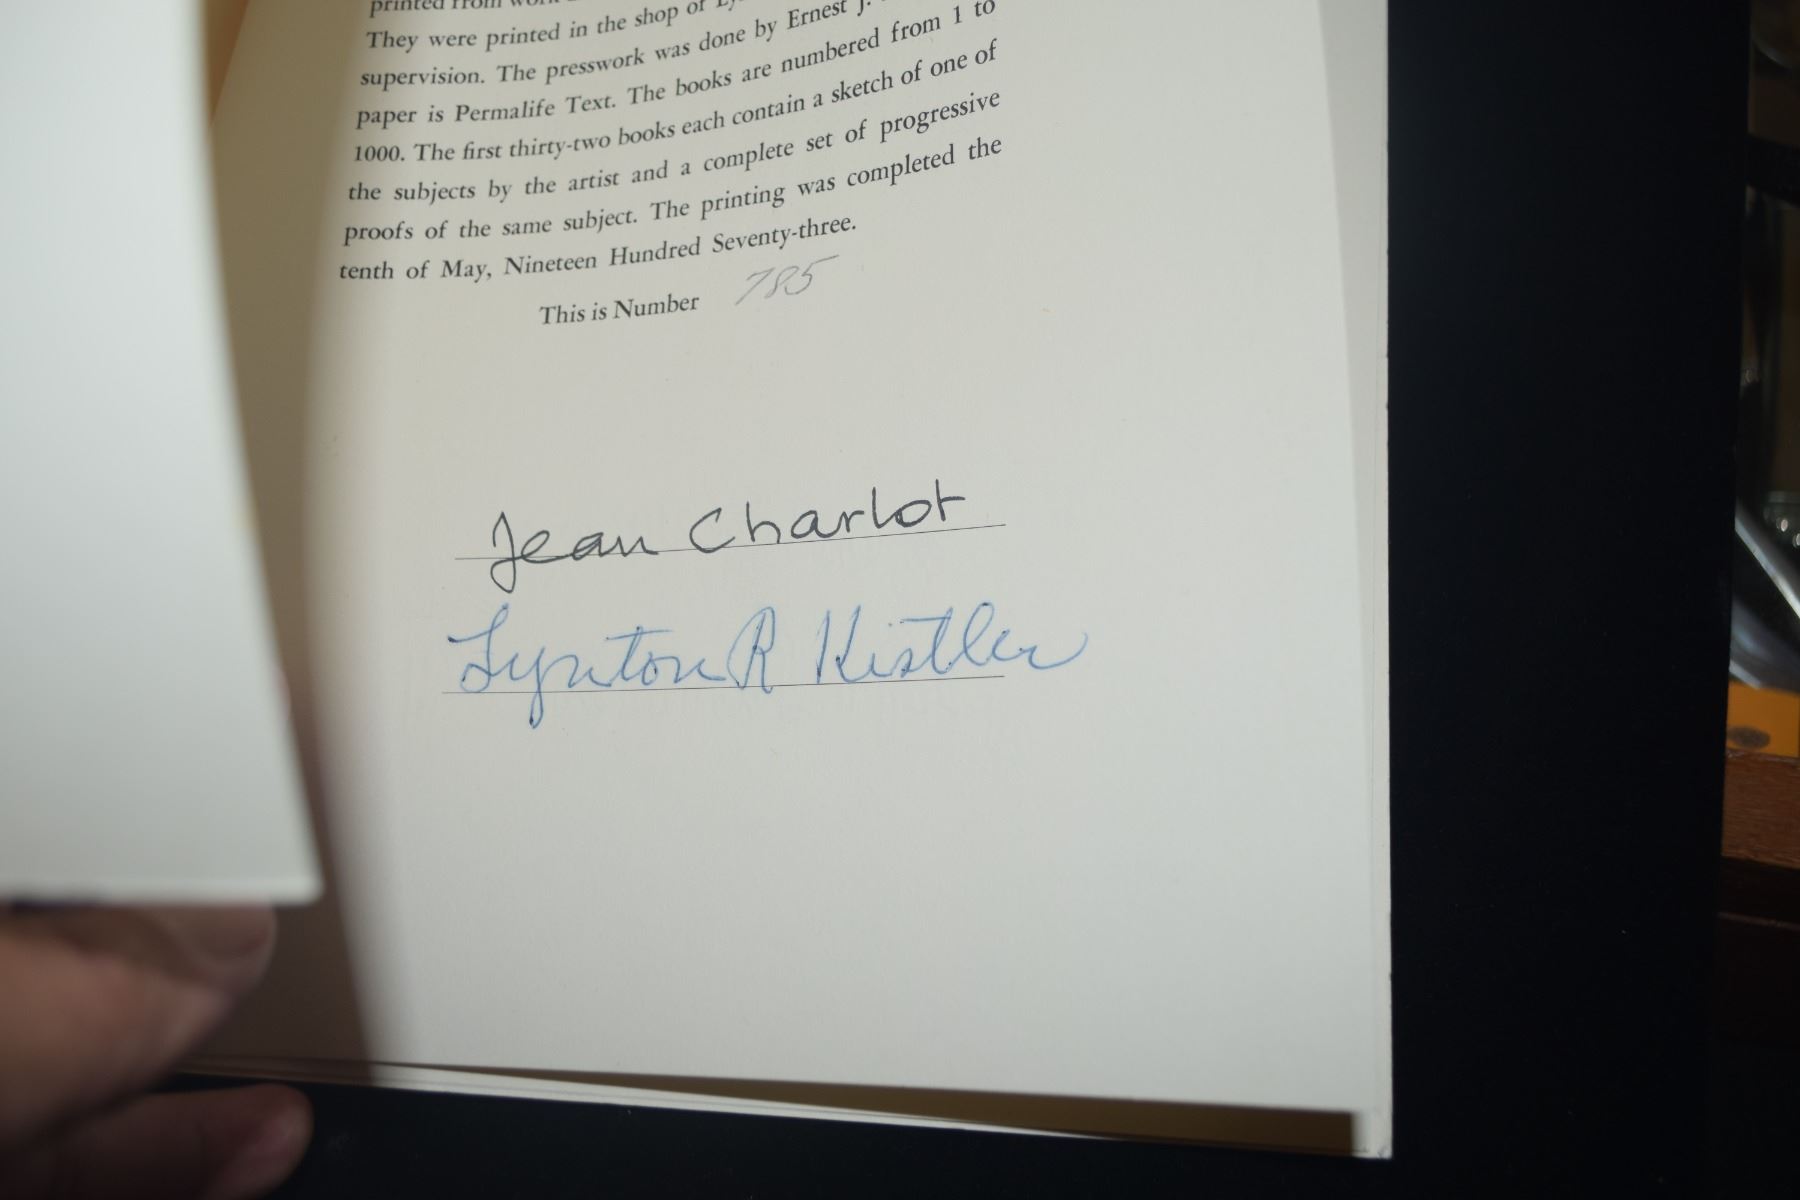 printed from work
They were printed in the shop of
supervision. The presswork was done by Ernest J.
paper is Permalife Text. The books are numbered from 1 to
1000. The first thirty-two books each contain a sketch of one of
the subjects by the artist and a complete set of progressive
proofs of the same subject. The printing was completed the
tenth of May, Nineteen Hundred Seventy-three.
This is Number 785
Jean Charlot
Lynton R Kistler